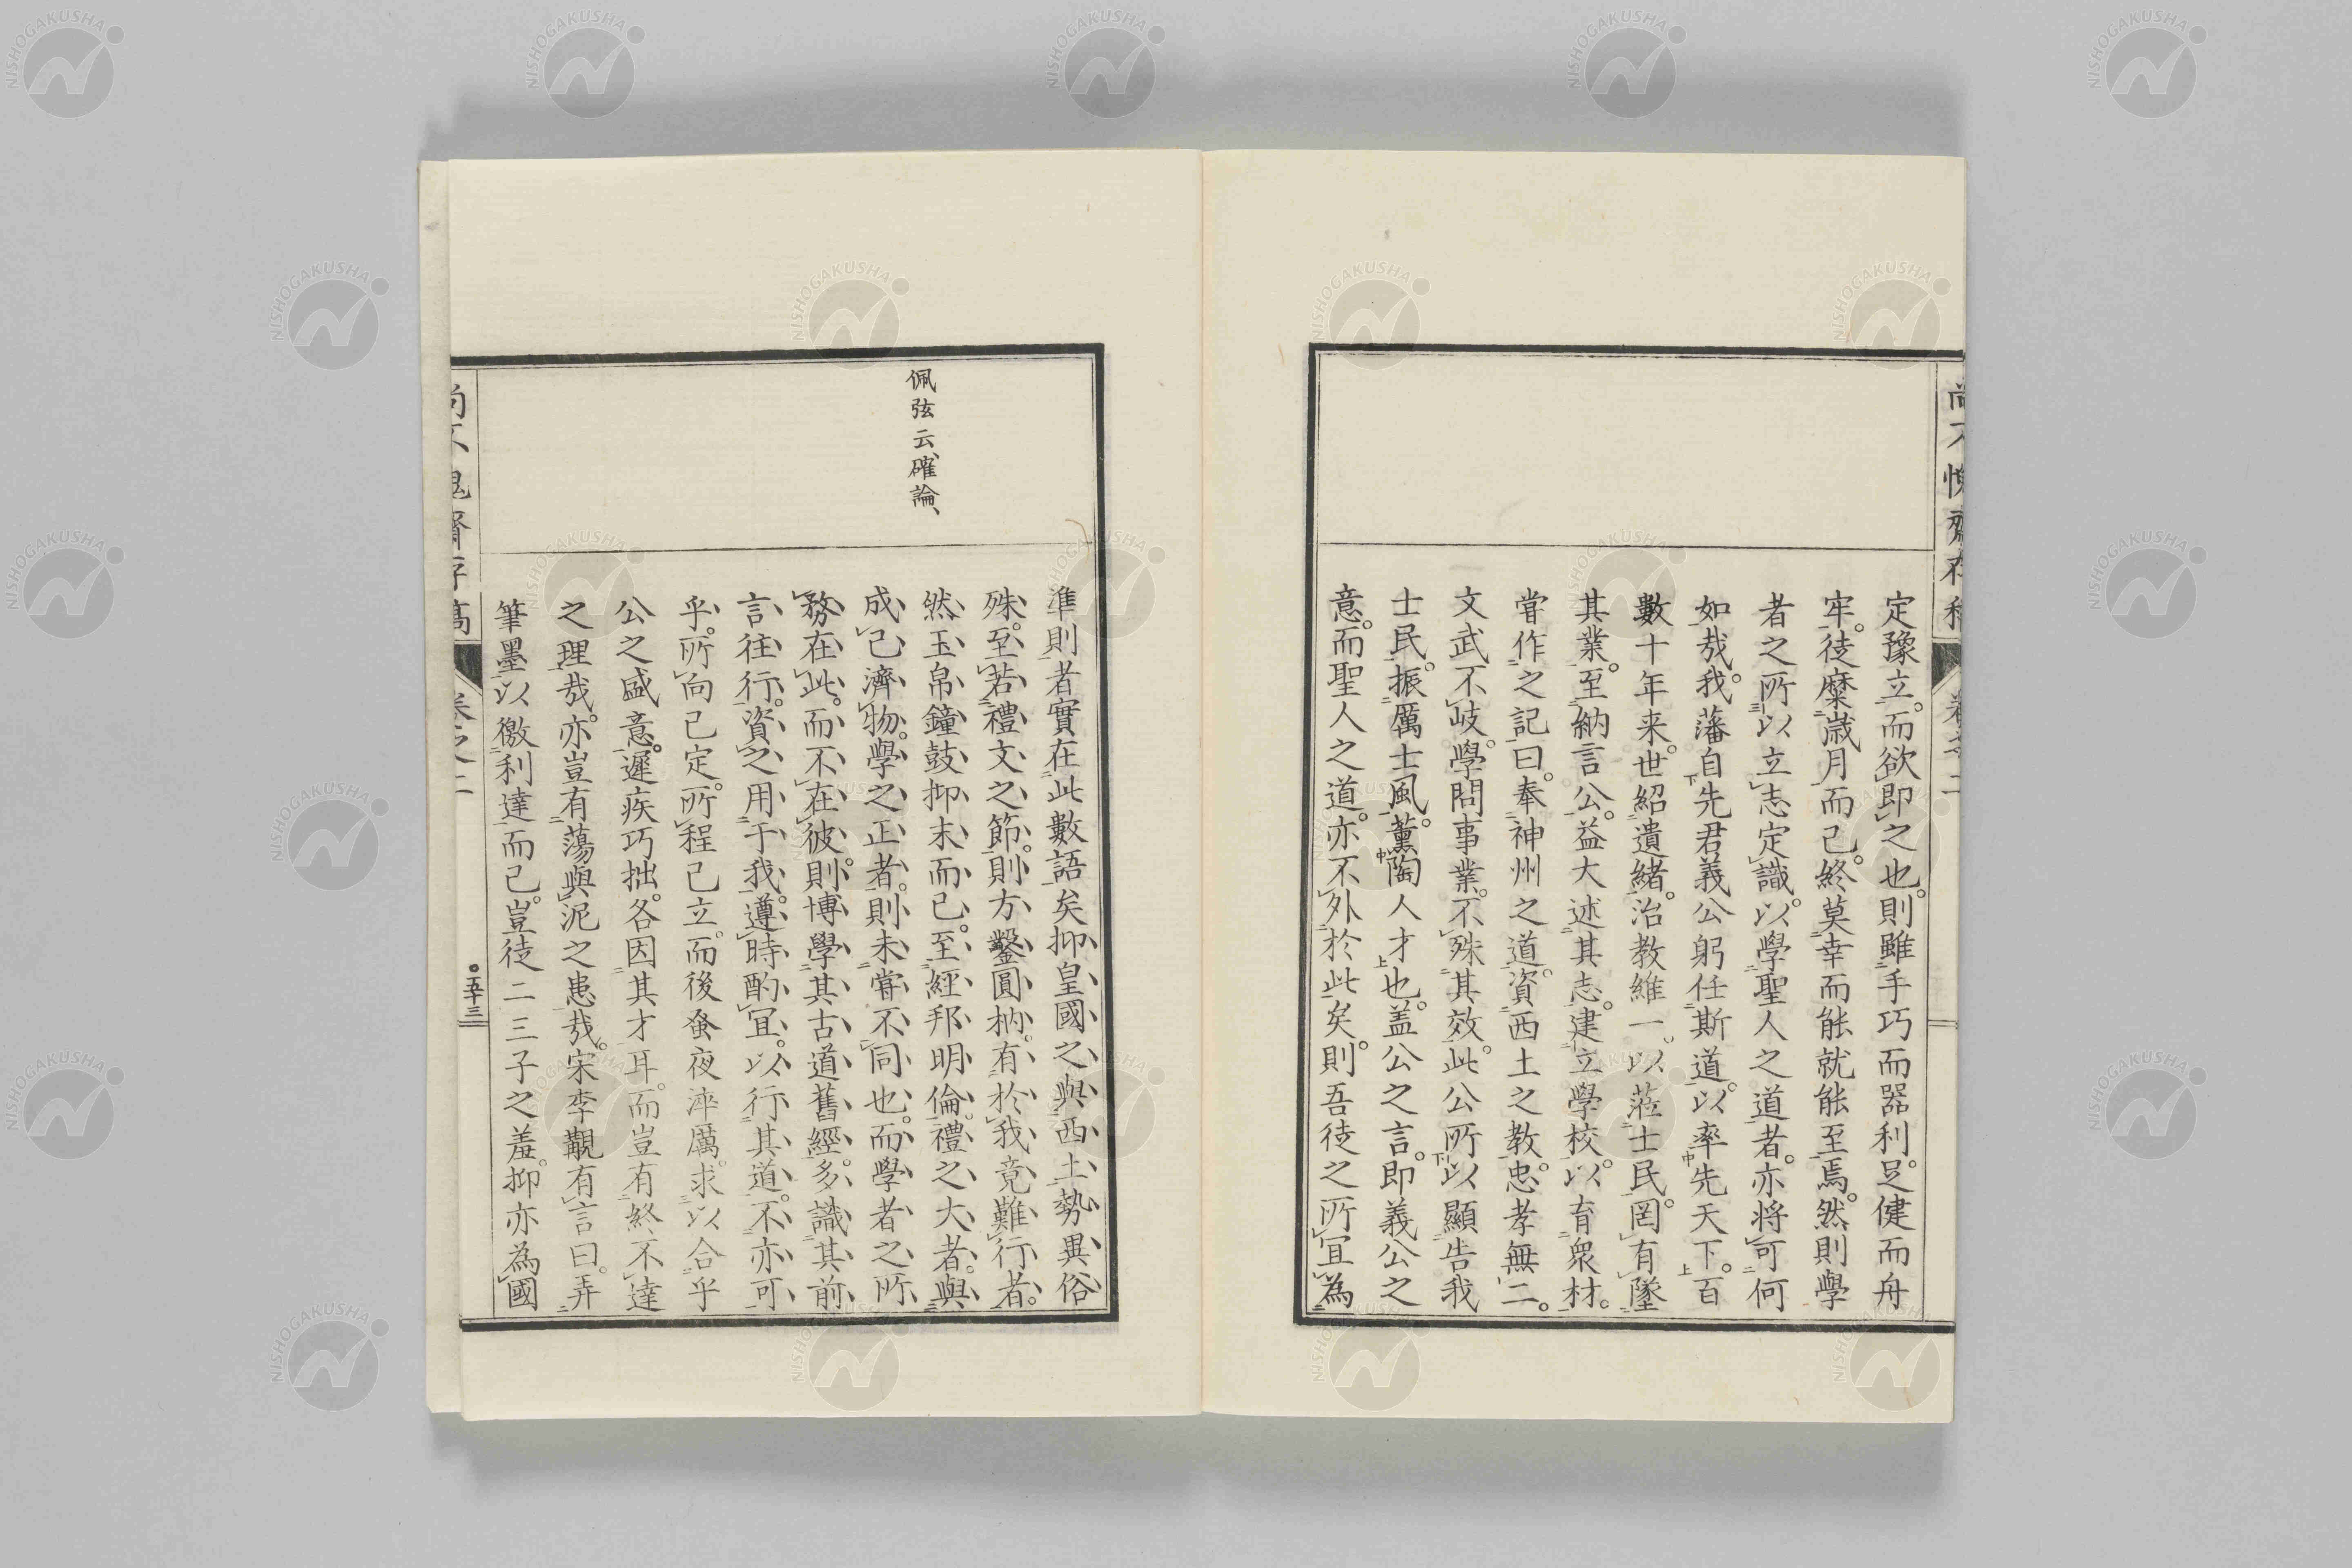 定豫立。而欲即之也。則雖手巧而器利。足健而舟
牢。徒糜歲月而已。終莫幸而能就能至焉。然則學
者之所以立志定識。以學聖人之道者。亦將可何
如哉。我藩自先君義公躬任斯道。以率先天下。百
數十年来。世紹遺緒。治教維一。以蒞士民。罔有墜
其業。至納言公。益大述其志。建立學校。以育衆材。
甞作之記曰。奉神州之道。資西土之教。忠孝無二。
文武不岐。學問事業。不殊其效。此公所以顯告我
士民。振厲士風。薫陶人才也。盖公之言。即義公之
意。而聖人之道。亦不外於此矣。則吾徒之所宜為
準則者實在此數語矣抑皇國之與西土勢異俗
殊。至若禮文之節。則方鑿圓枘。有於我竟難行者。
然玉帛鐘鼓抑末而已。至經邦明倫。禮之大者。與
成己濟物。學之正者。則未甞不同也。而學者之所
務在此。而不在彼。則博學其古道舊經。多識其前
言往行。資之用于我。遵時酌宜。以行其道。不亦可
乎。所向已定。所程已立。而後夙夜淬厲。求以合乎
公之盛意。遲疾巧拙。各因其才耳。而豈有終不達
之理哉。亦豈有蕩與泥之患哉。宋李覯有言曰。弄
筆墨以徼利達而已。豈徒二三子之羞。抑亦為國
佩弦云、確論、
卷之二
五十三